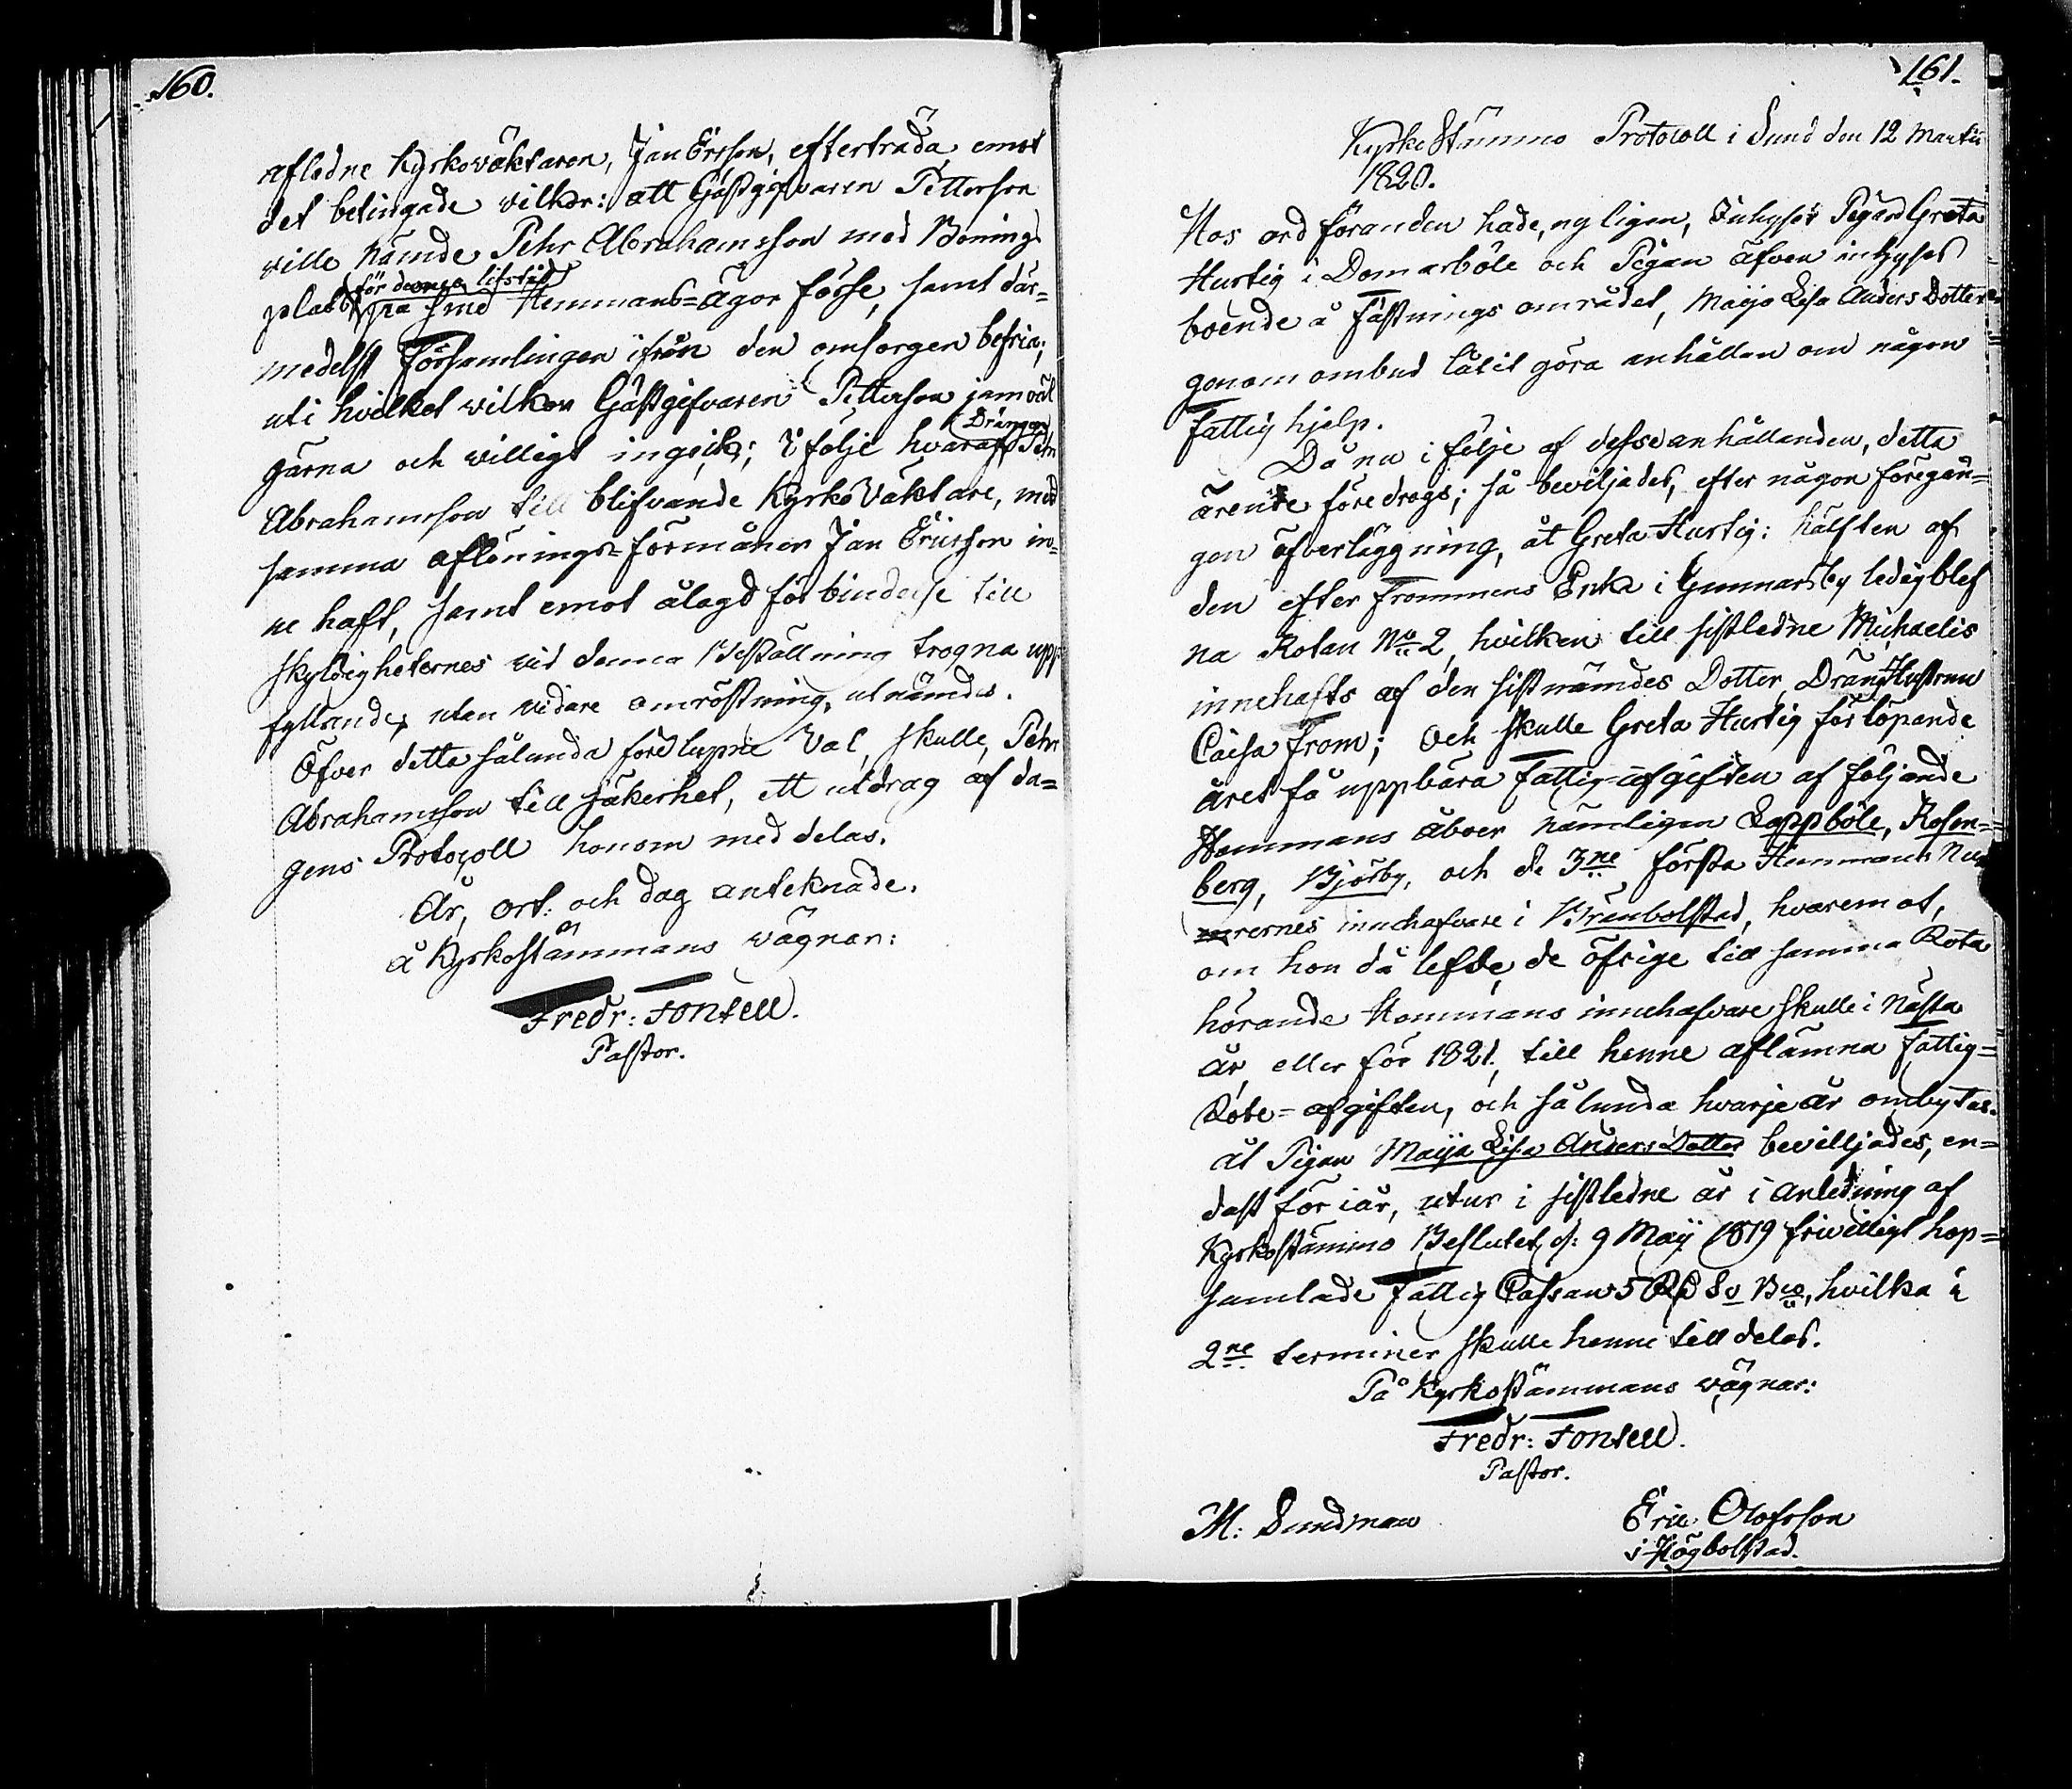 160.
aflodne Kyrkoväktaren, Jan Ersson, efterträda emot
det betingade wilkor: att Gästgifvaren Petterson
wille nämde Pehr Abrahamsson med Bonings
för dennes lifstid
plats på sine Hemmans=ägor förse, samt där=
medelst Församlingen ifrån den omsorgen befria;
uti hvilket wilkor Gästgifvaren Petterson jämväl
Drängen
gärna och willigt ingick; I följe hvaraf Pehr
Abrahamsson till blifvande Kyrko Väktare, med
samma aflönings=förmåner Jan Ericsson in=
ne haft, samt emot ålagd förbindelse till
skyldigheternes vid denna Beställning trogna upp=
fyllande, utan vidare omröstning, utnämdes.
Öfver detta sålunda förelupne Val, skulle, Pehr
Abrahamsson till säkerhet, ett utdrag af da=
gens Protocoll honom med delas.
År, ort: och dag anteknade.
å Kyrkostämmans wägnar:
Fredr: Fontell.
Pastor.
161.
Kyrko Stämmo Protocoll i Sund den 12 Martii
1820.
Hos ordföranden hade, nyligen, Inhyses Pigan Greta
Hurtig i Domarböle och Pigan äfven inhyses
boende å Fästnings området, Maija Lisa Anders Dotter
genom ombud låtit göra anhållan om någon
Fattig hjelp.
Då nu i följe af desse anhållanden, detta
ärende föredrogs; så beviljades, efter någon föregån=
gen öfverläggning, åt Greta Hurtig: hälften af
den efter Frommens Enka i Gunnarsby ledigblef
na Rotan No 2, hvilken till sistledne Michaelis
innehafts af den sistnämdes Dotter, Dräng Hustrun
Caisa From; Och skulle Greta Hurtig förlöpande
året få uppbära Fattig=afgiften af följande
Hemmans åboer nämligen Lappböle, Rosen=
berg, Björby, och de 3ne första Hemmans Num
rernes innehafvare i Bränbolstad, hvaremot,
om hon då lefde, de öfrige till samma Rota
hörande Hemmans innehafvare skulle i Nästa
år, eller för 1821, till henne aflämna fattig=
Rote=afgiften, och sålunda hvarje år ombytas.
åt Pigan Maija Lisa Anders Dotter bevilljades, en=
dast för iår, utur i sistledne år i anledning af
Kyrkostämmo Beslutet, d: 9 Maij 1819 friwilligt hop=
samlade Fattig Cassan 5 Rd So Bco, hvilka i
2ne terminer skulle henne till delas.
På Kyrkostämmans wägnar:
Fredr: Fontell.
Pastor.
M: Sundman
Eric Olofsson
i Högbolstad.